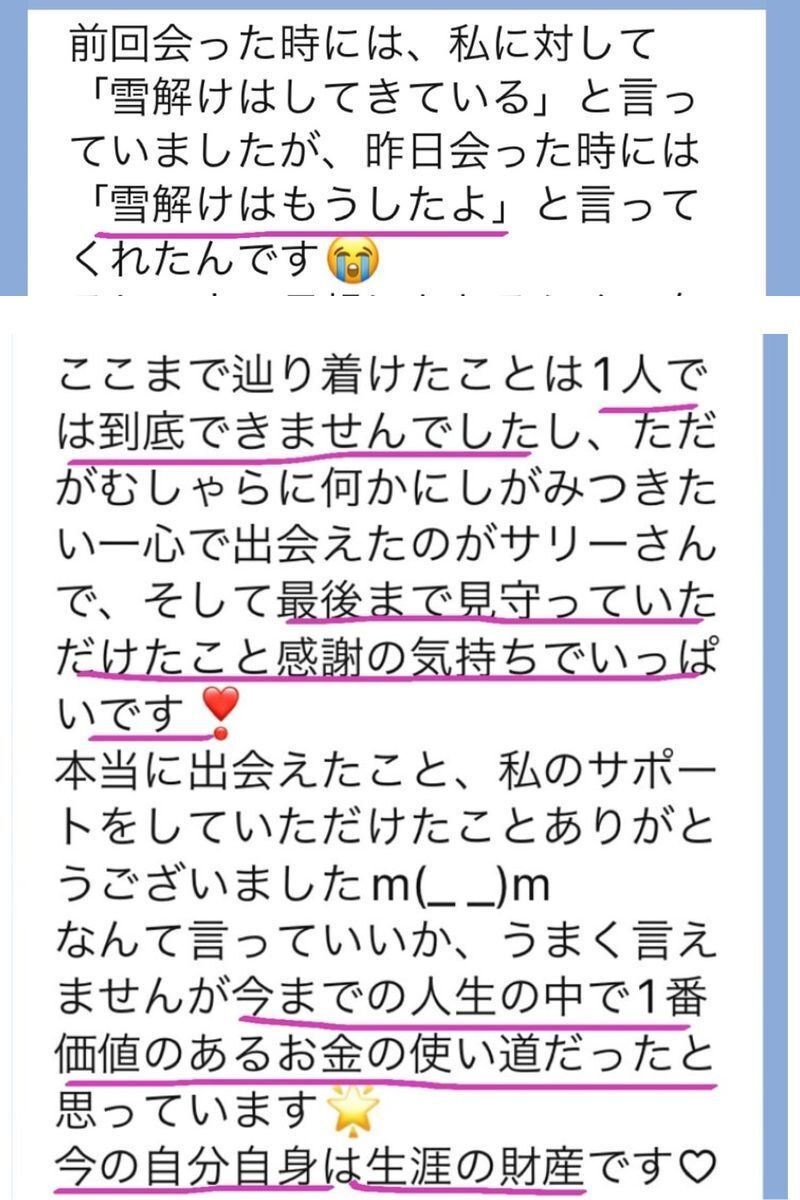 前回会った時には、私に対して
「雪解けはしてきている」と言っ
ていましたが、昨日会った時には
「雪解けはもうしたよ」と言って
くれたんです😭
ここまで辿り着けたことは1人で
は到底できませんでしたし、ただ
がむしゃらに何かにしがみつきた
い一心で出会えたのがサリーさん
で、そして最後まで見守っていた
だけたこと感謝の気持ちでいっぱ
いです❣️
本当に出会えたこと、私のサポー
トをしていただけたことありがと
うございましたm(_ _)m
なんて言っていいか、うまく言え
ませんが今までの人生の中で1番
価値のあるお金の使い道だったと
思っています🌟
今の自分自身は生涯の財産です♡